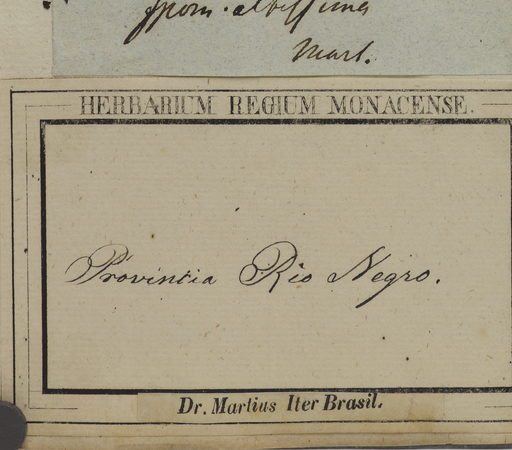 Ipom. altissima
Mart.
HERBARIUM REGIUM MONACENSE.
Provintia Rio Negro.
Dr. Martius Iter Brasil.